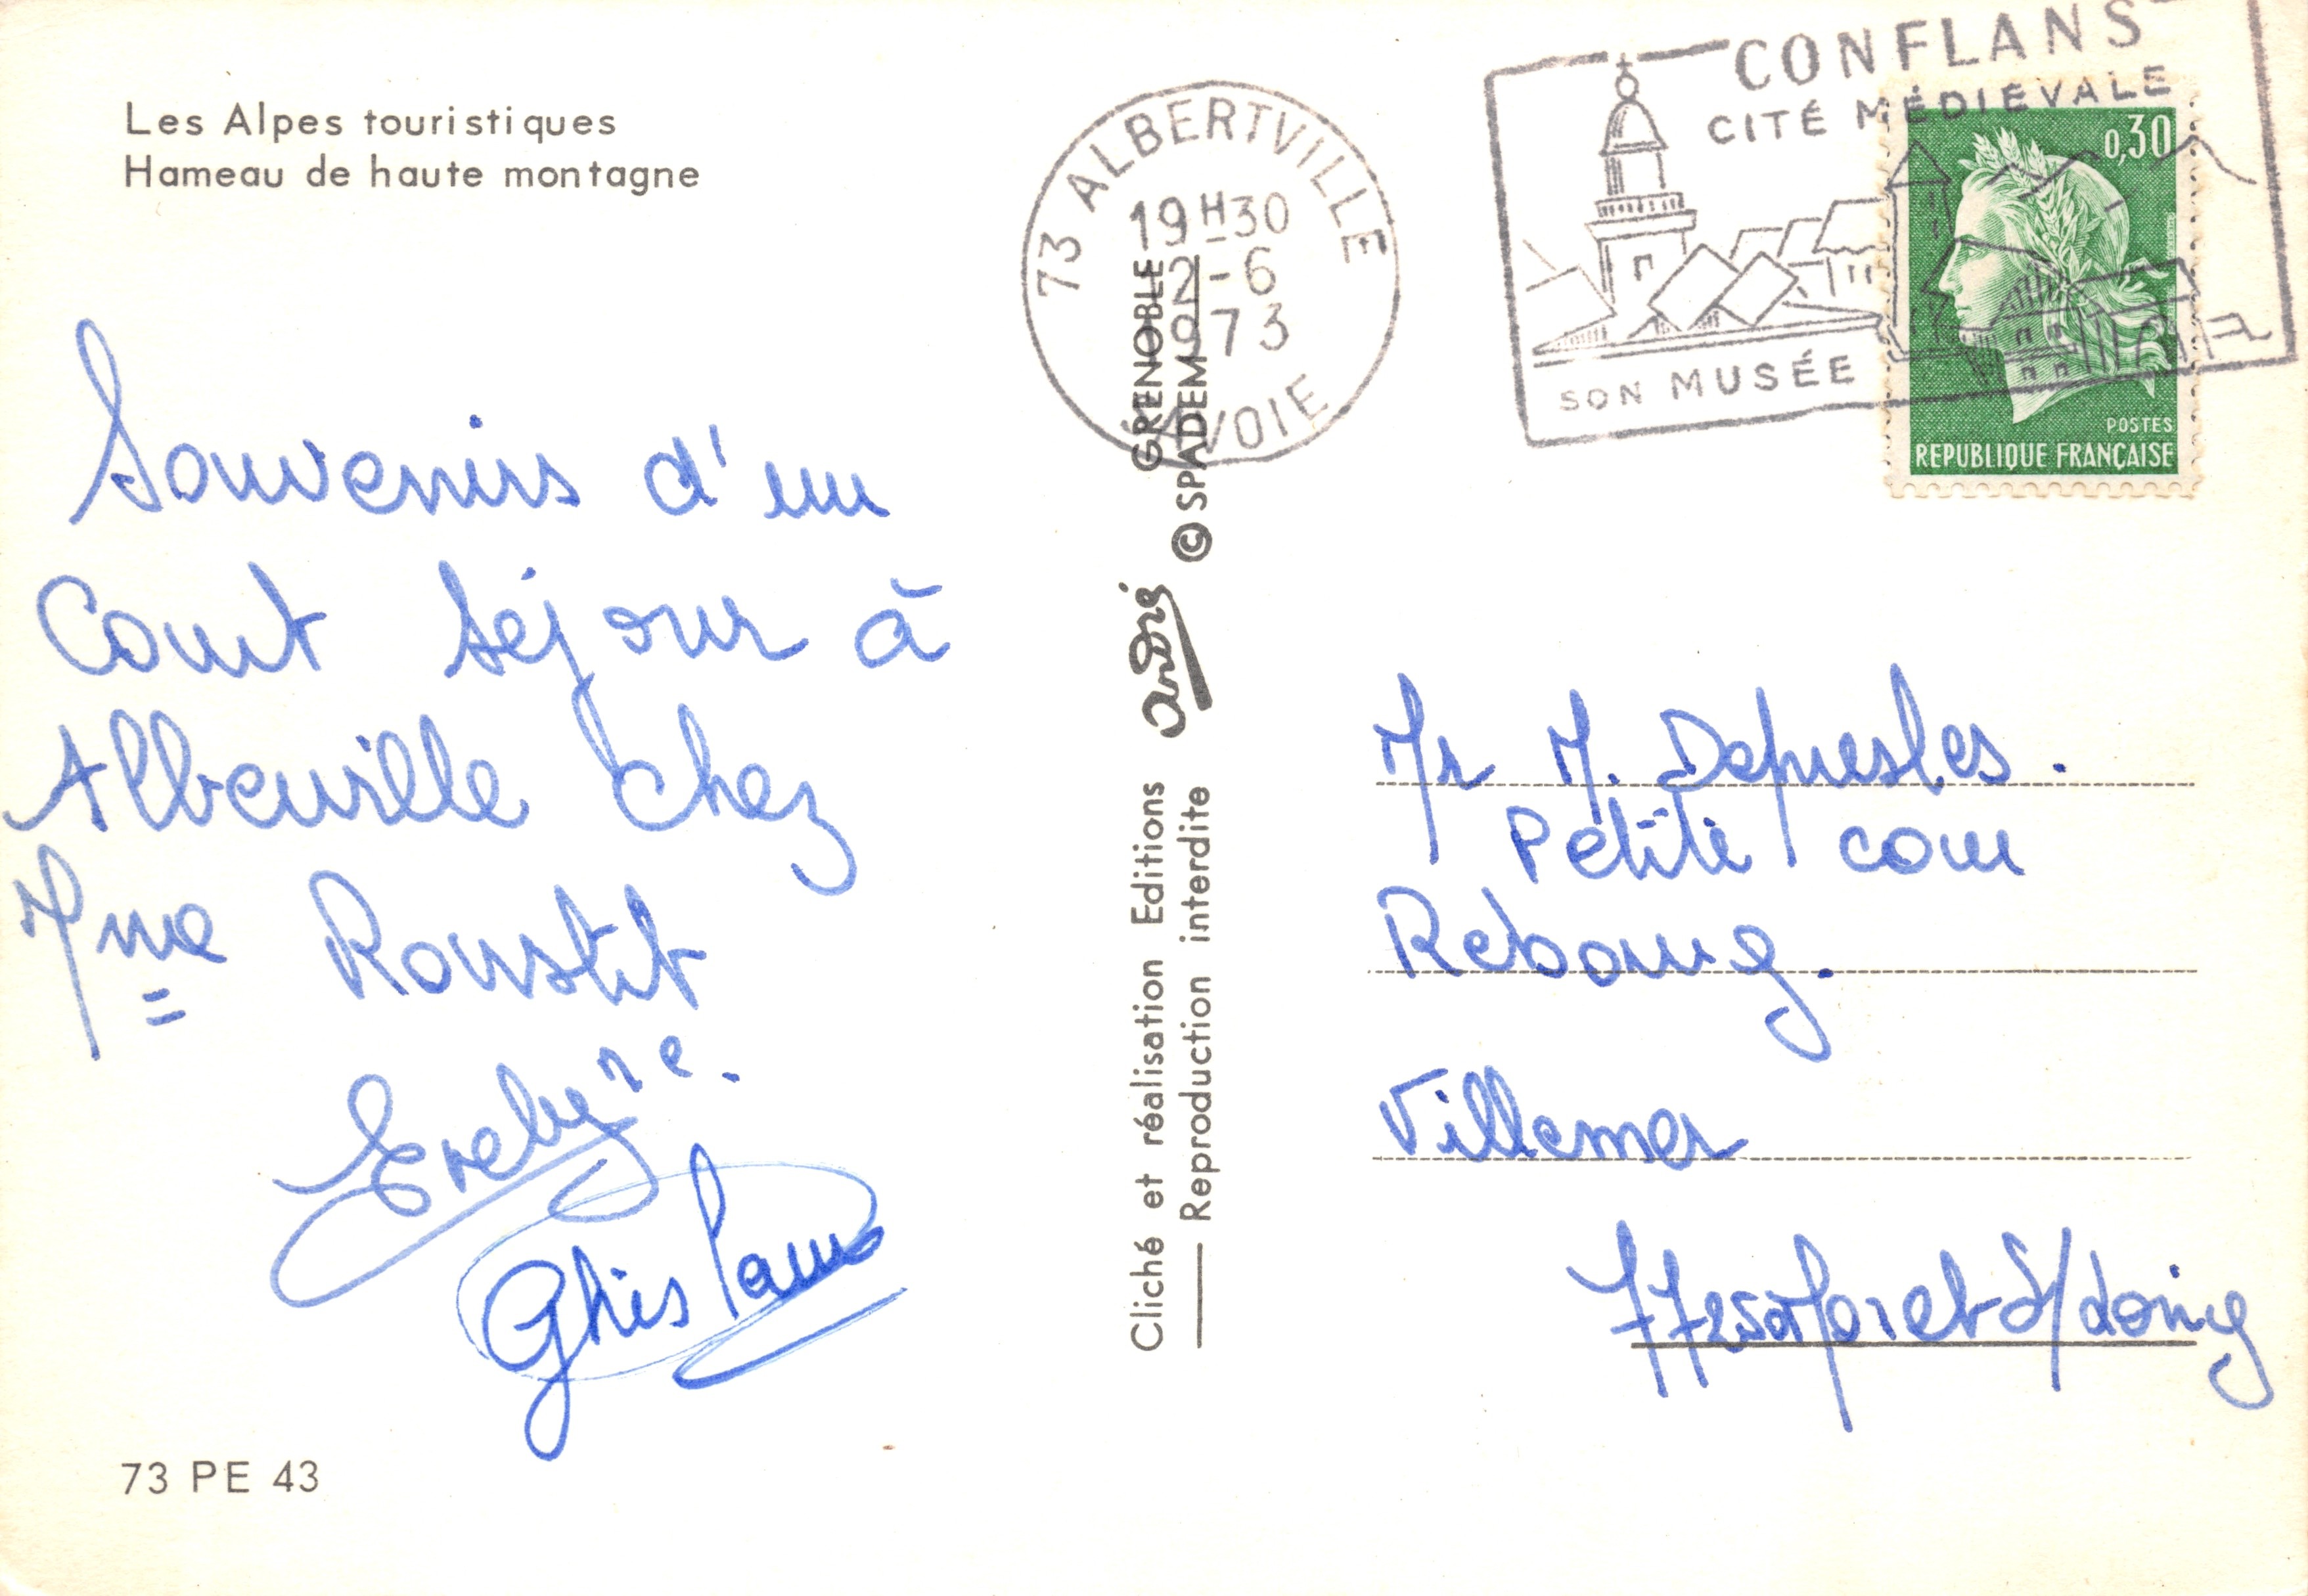 Les Alpes touristiques
Hameau de haute montagne
Souvenirs d'un
Court séjour à
Albeville chez
Mme Roustit
Evelyne.
Ghislaine
73 PE 43
Cliché et réalisation Editions André GRENOBLE
Reproduction interdite © SPADEM
73 ALBERTVILLE
19H30
2-6
1973
SAVOIE
CONFLANS
CITÉ MÉDIÉVALE
SON MUSÉE
0,30
POSTES
REPUBLIQUE FRANÇAISE
Mr M. Depresles.
Petite cour
Rebourg.
Villemer
77250 Moret S/ Loing